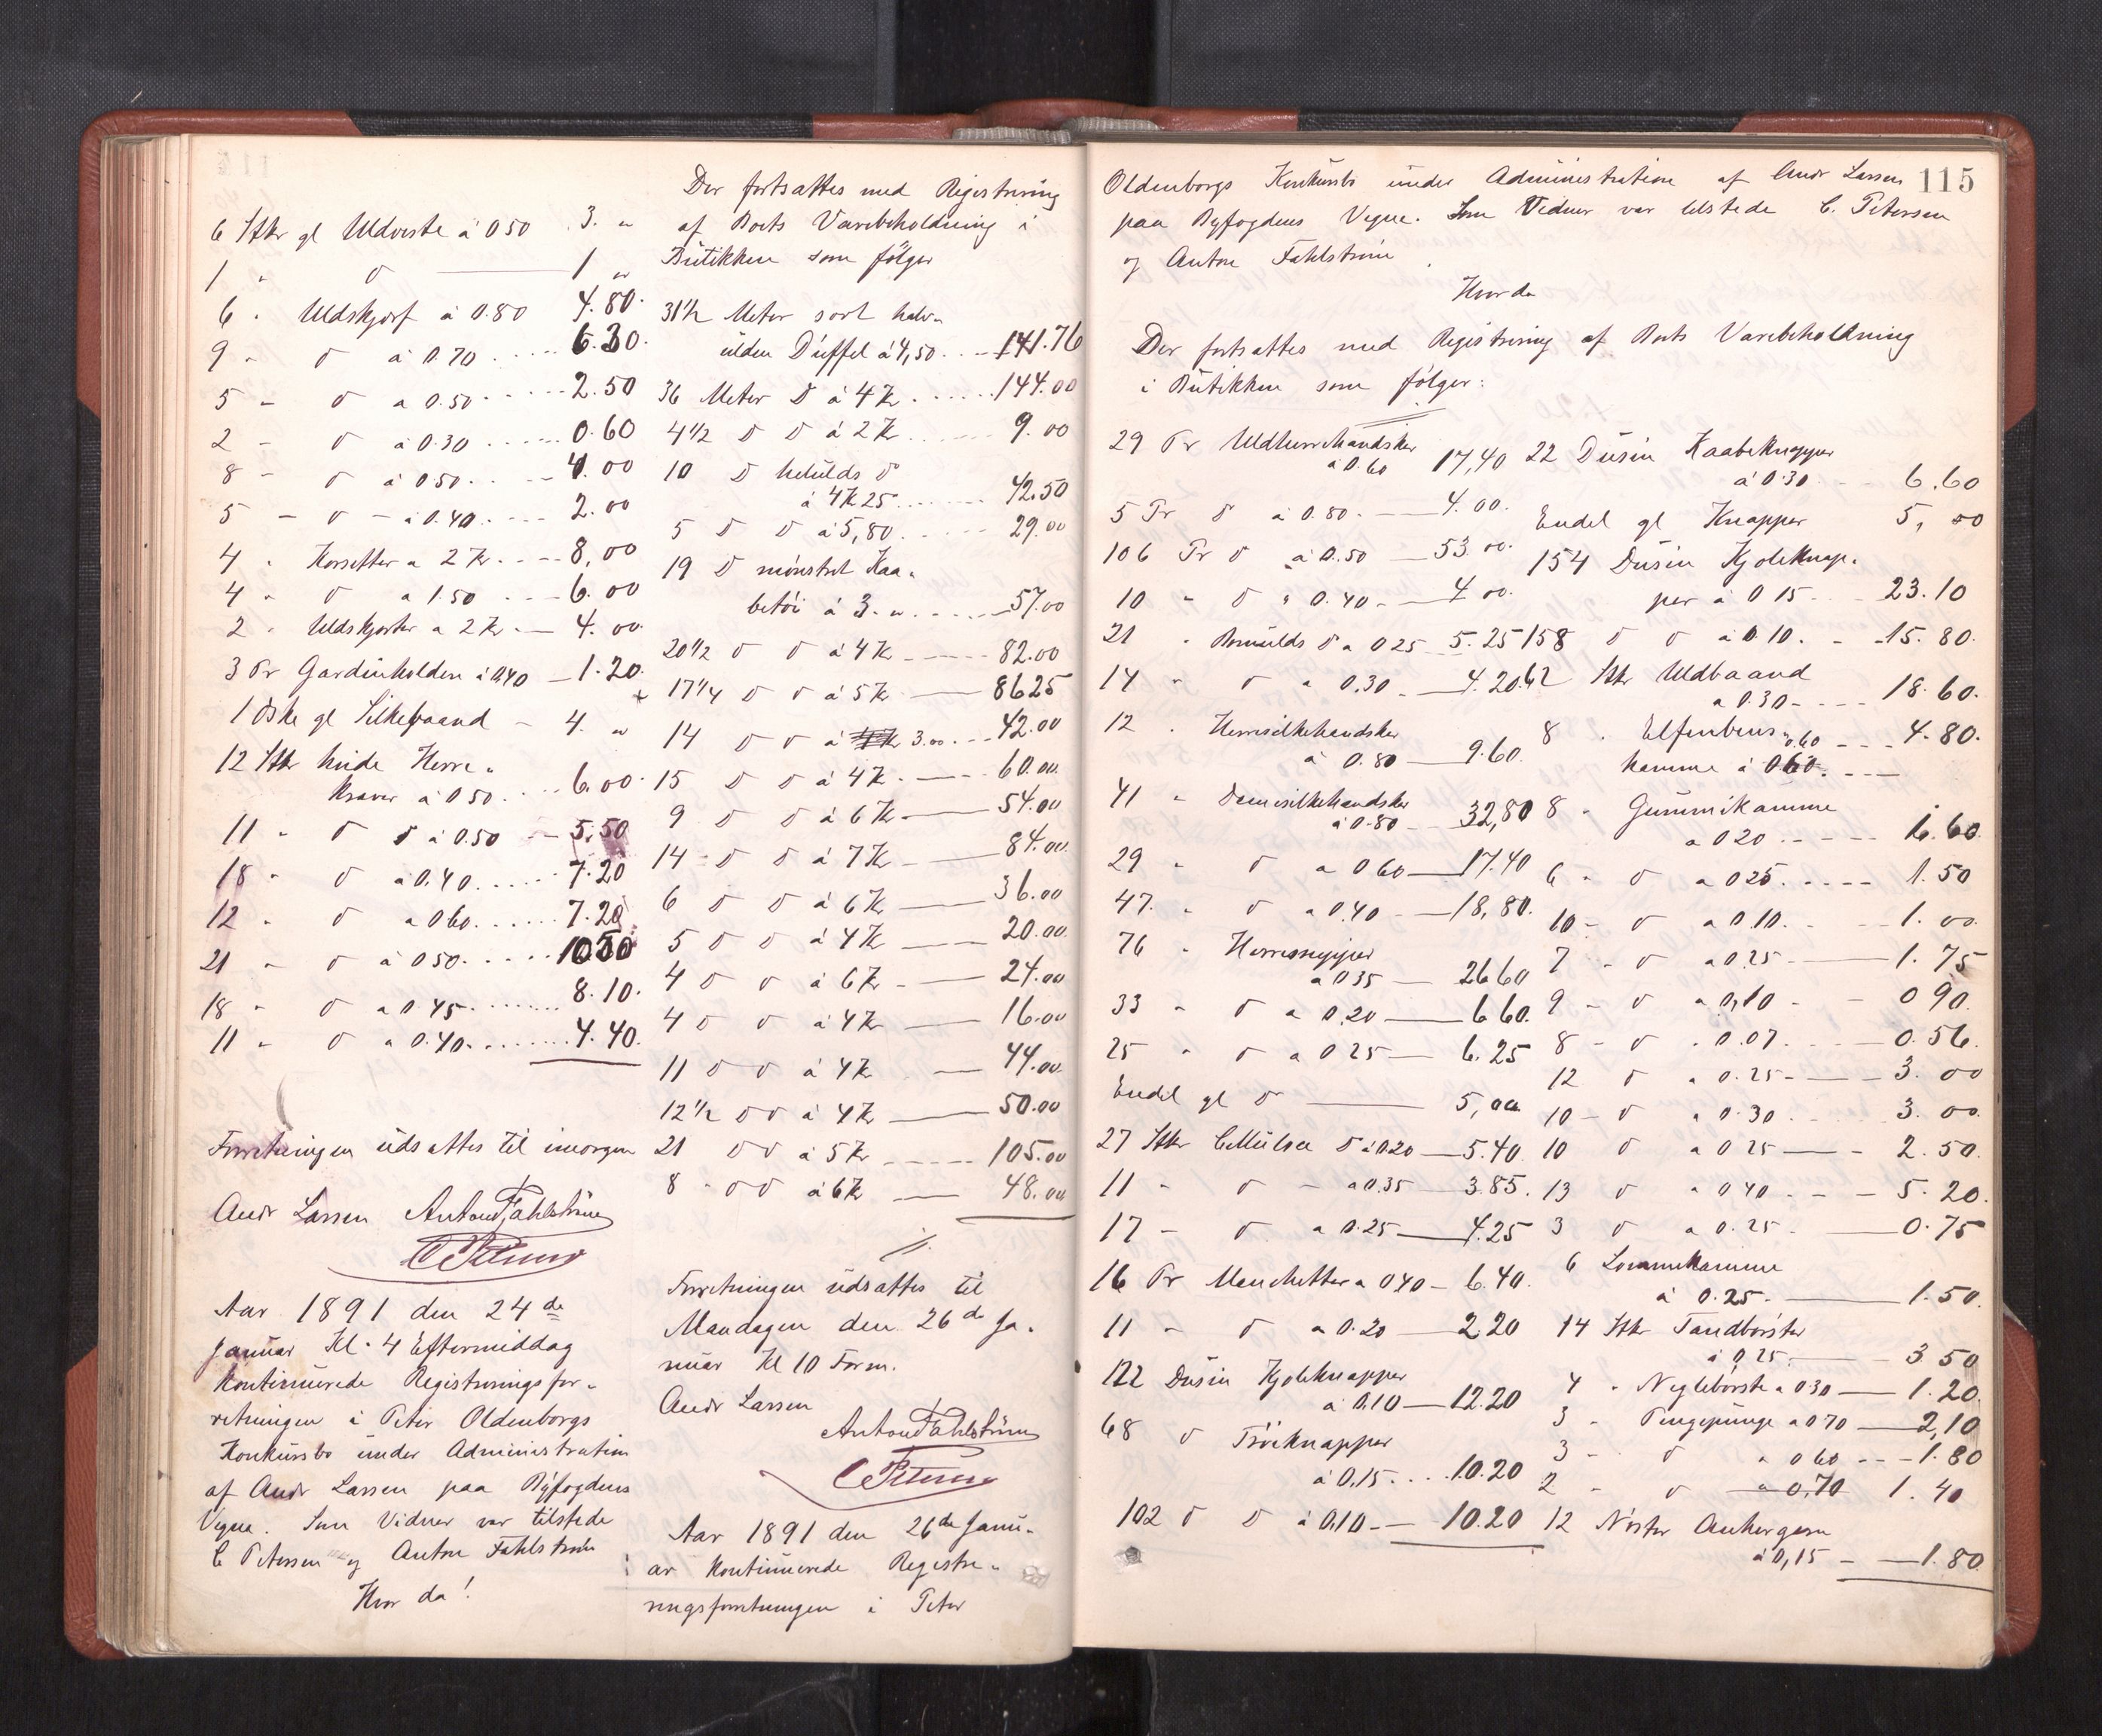 6 Stkr gl Uldveste á 0 50 3. "
1 " D 1 "
6 " Uldskjørf a 0.80 4.80.
9 " D a 0.70 6.30.
5 " D a 0.50 2.50
2 " D a 0.30 0.60
8 " D á 0 50 4.00
5 " D " á 0.40 2.00
4 " Korsetter a 2 Kr 8,00
4 " D a 1.50 6.00
2 " Uldskjorter a 2 Kr 4.00
3 Pr Gardinholdere á 0,40 1.20.
1 Øske gl Silkebaand 4. "
12 Stkr hvide Herre-
kraver á 0 50 6.00
11 " D D á 0.50 5.50
18 " D a 0.40 7.20
12 " D a 0 60 7.20
21 " D á 0 50 10.50
18 " D a 0 45 8.10.
11 " D a 0.40 4.40.
Forretningen udsattes til imorgen
Andr Larsen Anton Fahlstrøm
C Petersen
Aar 1891 den 24de
Januar Kl. 4 Eftermiddag
kontinuerede Registreringsfor-
retningen i Peter Oldenborgs
Konkursbo under Administration
af Andr Larsen paa Byfogdens
Vegne. Som Vidner var tilstede
C Petersen og Anton Fahlstrøm
Hvor da!
Der fortsattes med Registrering
af Boets Varebeholdning i
Butikken som følger
31 1/2 Meter sort halv-
ulden Düffel á 4,50 141.76
36 Meter D á 4 Kr 144.00
4 1/2 D D á 2 Kr 9.00
10 D helulds D
á 4 Kr 25 42.50
5 D D á 5,80 29.00
19 D mønstret Kaa-
betøi á 3. " 57.00
20 1/2 D D á 4 Kr 82.00
+ 17 1/4 D D á 5 Kr 86 25
14 D D á 3.00 42.00
15 D D á 4 Kr 60.00.
9 D D á 6 Kr 54.00
14 D D á 7 Kr 84.00.
6 D D á 6 Kr 36.00
5 D D á 4 Kr 20.00.
4 D D á 6 Kr 24.00
4 D D á 4 Kr 16.00
11 D D á 4 Kr 44.00.
12 1/2 D D á 4 Kr 50.00
21 D D á 5 Kr 105.00
8 " D D á 6 Kr 48.00
Forretningen udsattes til
Mandagen den 26de Ja-
nuar Kl 10 Form.
Andr Larsen
Anton Fahlstrøm
C Petersen
Aar 1891 den 26de Janu-
ar kontinuerede Registre-
ringsforretningen i Peter
115
Oldenborgs Konkursbo under Administration af Andr Larsen
paa Byfogdens Vegne. Som Vidner var tilstede C. Petersen
og Anton Fahlstrøm
Hvor da
Der fortsattes med Registrering af Boets Varebeholdning
i Butikken som følger:
29 Pr Uldherrehandsker
á 0.60 17,40
5 Pr D á 0.80 4.00.
106 Pr D á 0.50 53.00.
10 " D a 0.40 4.00.
21 " Bomulds D a 0 25 5.25
14 " D a 0.30 4.20.
12 " Herresilkehandsker
á 0.80 9.60.
41 " Damesilkehandsker
á 0.80 32,80
29 " D a 0 60 17.40
47. " D a 0.40 18,80.
76 " Herreslipper
a 0 35 26 60
33 " D a 0.20 6 60.
25 " D a 0 25 6.25
Endel gl D 5,00.
27 Stkr Celluloa D á 0.20 5.40.
11 " D " a 0.35 3.85.
17 " D a 0.25 4.25
16 Pr Manchetter a 0 40 6.40.
11 " D a 0.20 2.20
122 Dusin Kjoleknapper
á 0.10 12.20
68 D Trøieknapper
á 0.15 10.20
102 D D á 0,10 10.20
22 Dusin Kaabeknapper
á 0 30 6.60
Endel gl Knapper 5,00
154 Dusin Kjoleknap-
per á 0 15 23.10
158 D D á 0.10. 15.80.
62 Stkr Uldbaand
a 0.30 18.60.
8 " Elfenbens- 0.60 4.80.
kamme á 0 60.
8 " Gummikamme
a 0 20 1.60
6 " D a 0 25 1.50
10 " D a 0 10. 1.00.
7 " D a 0.25 1.75
9 " D a 0,10 0 90.
8 " D " 0.07. 0.56.
12 D " 0.25 3.00
10 " D " 0.30 3.00.
10 D a 0 25 2.50.
13 D " 0 40 5.20.
3 D a 0.25 0.75
6 Lommekamme
á 0.25 1.50.
14 Stkr Tandbørster
á 0,25 3 50
4 " Neglebørste a 0 30 1.20.
3 " Pengepunge a 0 70 2,10
3 " D " 0 60 1.80
2 " D a 0,70 1.40
12 Nøster Ankergarn
á 0,15 1.80